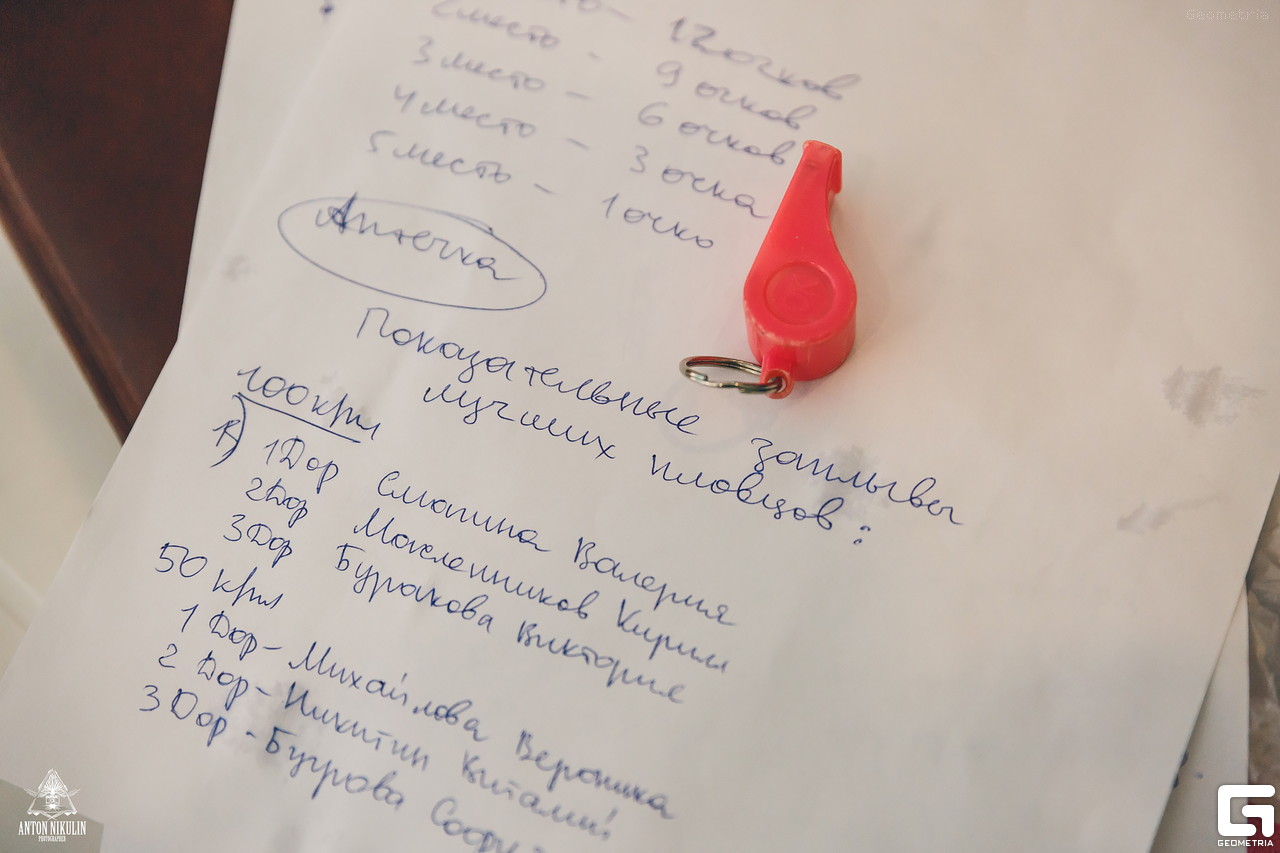 Geometria
12 очков
2 место - 9 очков
3 место - 6 очков
4 место - 3 очка
5 место - 1 очко
Аптечка
Показательные заплывы
лучших пловцов:
100 крл
1) 1 Дор Смолина Валерия
2 Дор Макленников Кирилл
3 Дор Буракова Виктория
50 крл
1 Дор - Михайлова Вероника
2 Дор - Никитин Виталий
3 Дор - Бугрова
ANTON NIKULIN
PHOTOGRAPHER
GEOMETRIA